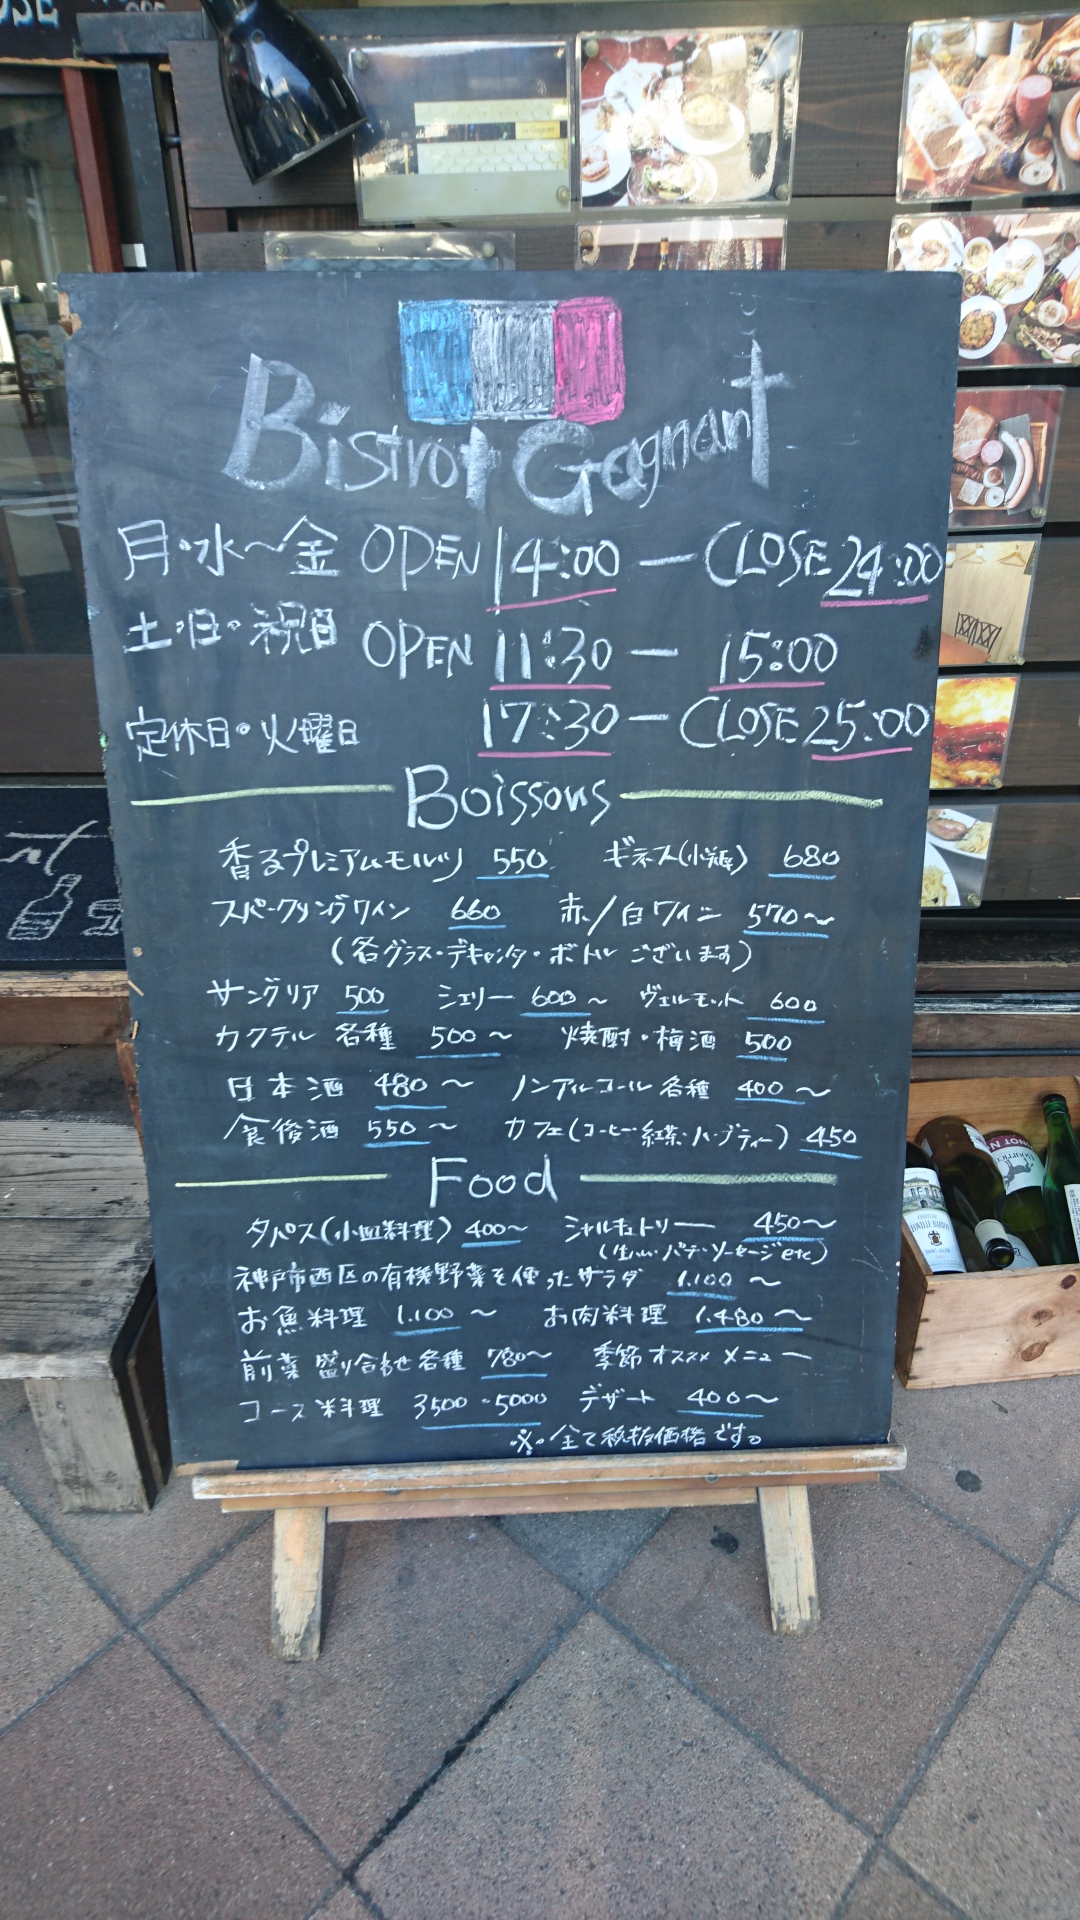 Bistrot Gagnant
月・水〜金 OPEN 14:00 ー CLOSE 24:00
土・日・祝日 OPEN 11:30 ー 15:00
17:30 ー CLOSE 25:00
定休日・火曜日
Boissons
香るプレミアムモルツ 550 ギネス(小瓶) 680
スパークリングワイン 660 赤/白ワイン 570〜
(各グラス・デキャンタ・ボトルございます)
サングリア 500 シェリー 600〜 ヴェルモット 600
カクテル 各種 500〜 焼酎・梅酒 500
日本酒 480〜 ノンアルコール各種 400〜
食後酒 550〜 カフェ(コーヒー・紅茶・ハーブティー) 450
Food
タパス(小皿料理) 400〜 シャルキュトリー 450〜
(生ハム・パテ・ソーセージetc)
神戸市西区の有機野菜を使ったサラダ 1.100〜
お魚料理 1.100〜 お肉料理 1.480〜
前菜 盛り合わせ各種 780〜 季節オススメメニュー
コース料理 3500・5000 デザート 400〜
※全て税抜価格です。